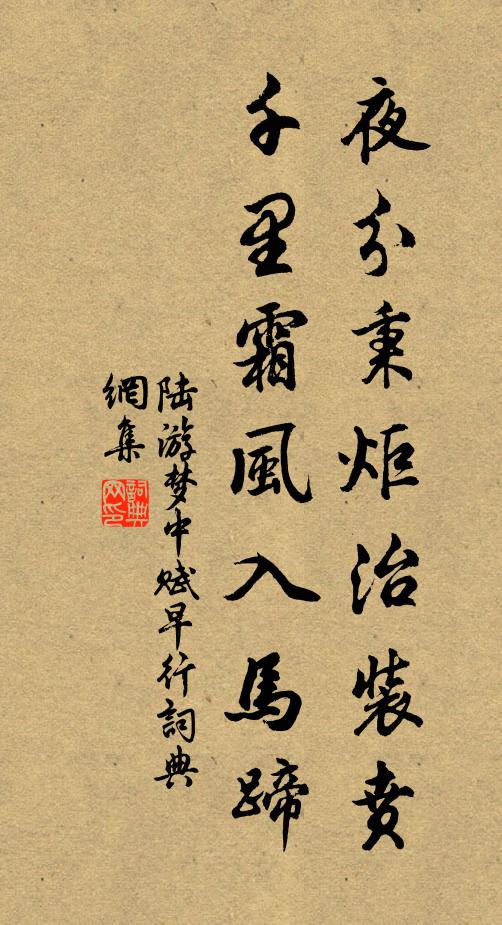 夜分秉炬治裝賁
千里霜風入馬蹄
陆游梦中赋早行詞典
網集
詞典网印